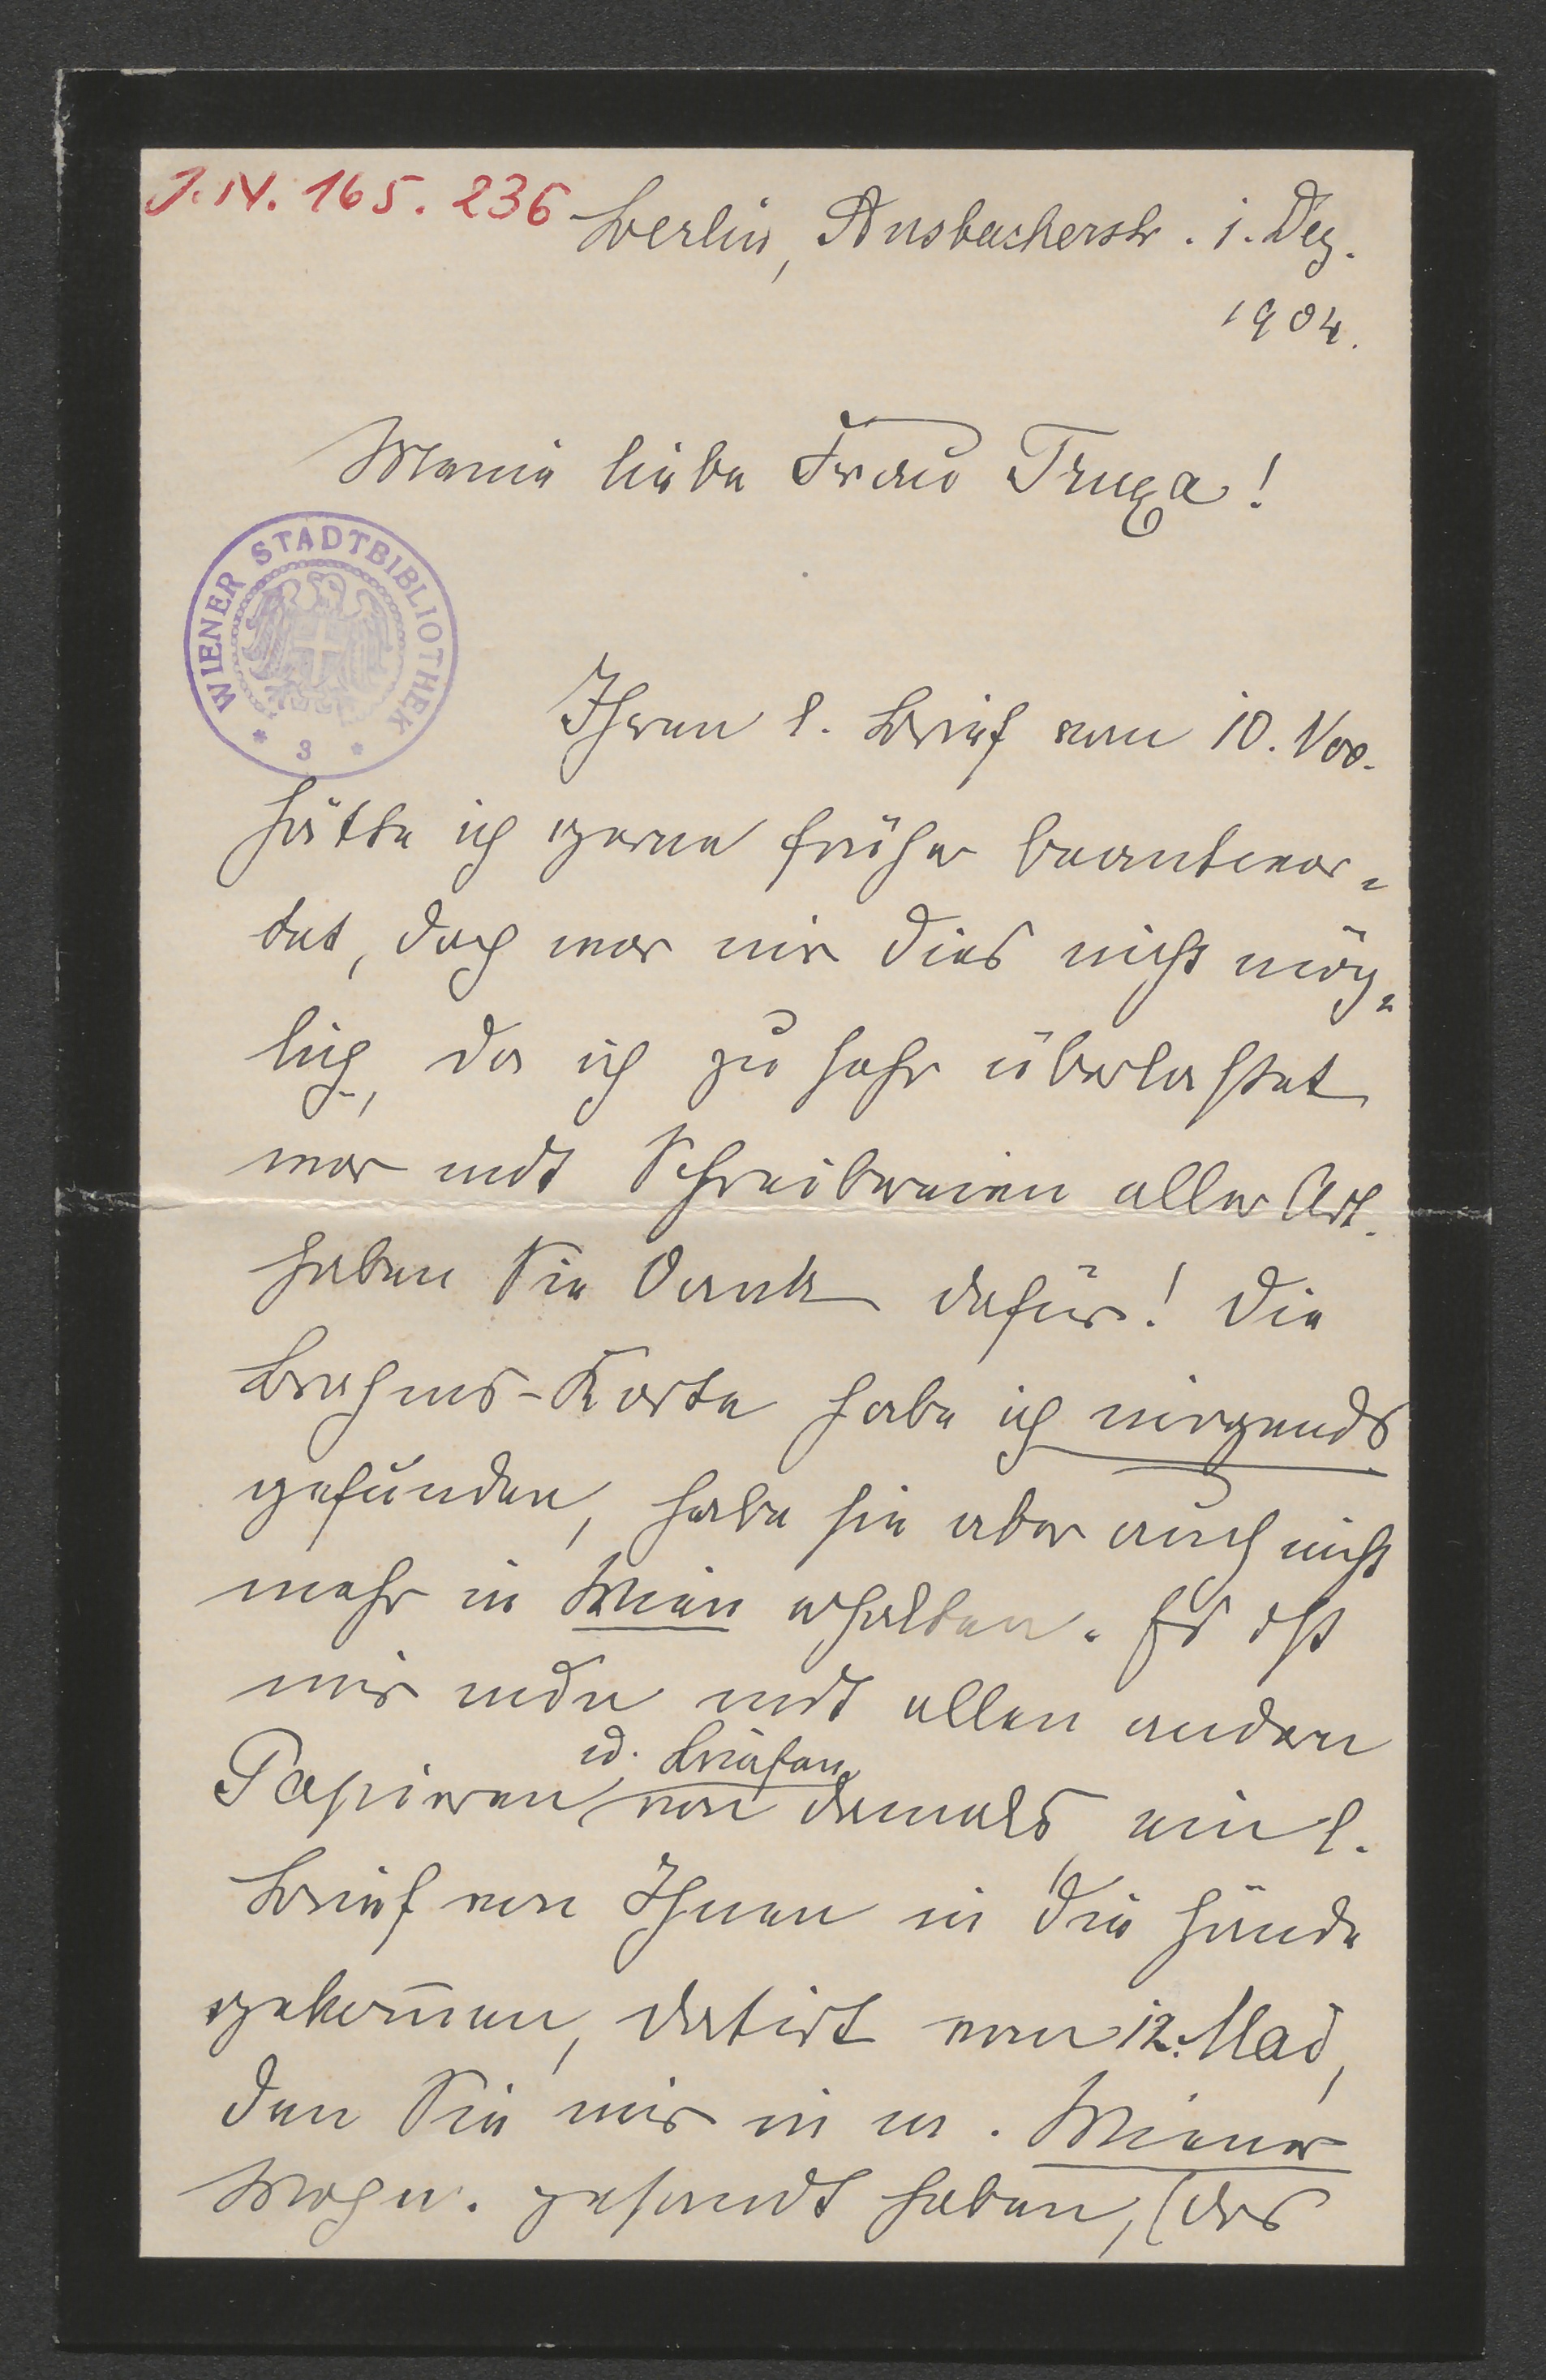 J. N. 165.236
Berlin, Ansbacherstr. 1. Dez.
1904.
Meine liebe Frau Truxa!
WIENER STADTBIBLIOTHEK
* 3 *
Ihren l. Brief vom 10. Nov.
hätte ich gerne früher beantwor=
tet, doch war mir dies nicht mög=
lich, da ich zu sehr überlastet
war mit Schreibereien aller Art.
Haben Sie Dank dafür! Die
Brahms-Karte habe ich nirgends
gefunden, habe sie aber auch nicht
mehr in Wien erhalten. Es ist
mir nun mit allen andern
u. Briefen
Papieren von damals ein l.
Brief von Ihnen in die Hände
gekom̅en, datirt vom 12. Mai,
den Sie mir in m. Wiener
Wohn. gesandt haben, (das